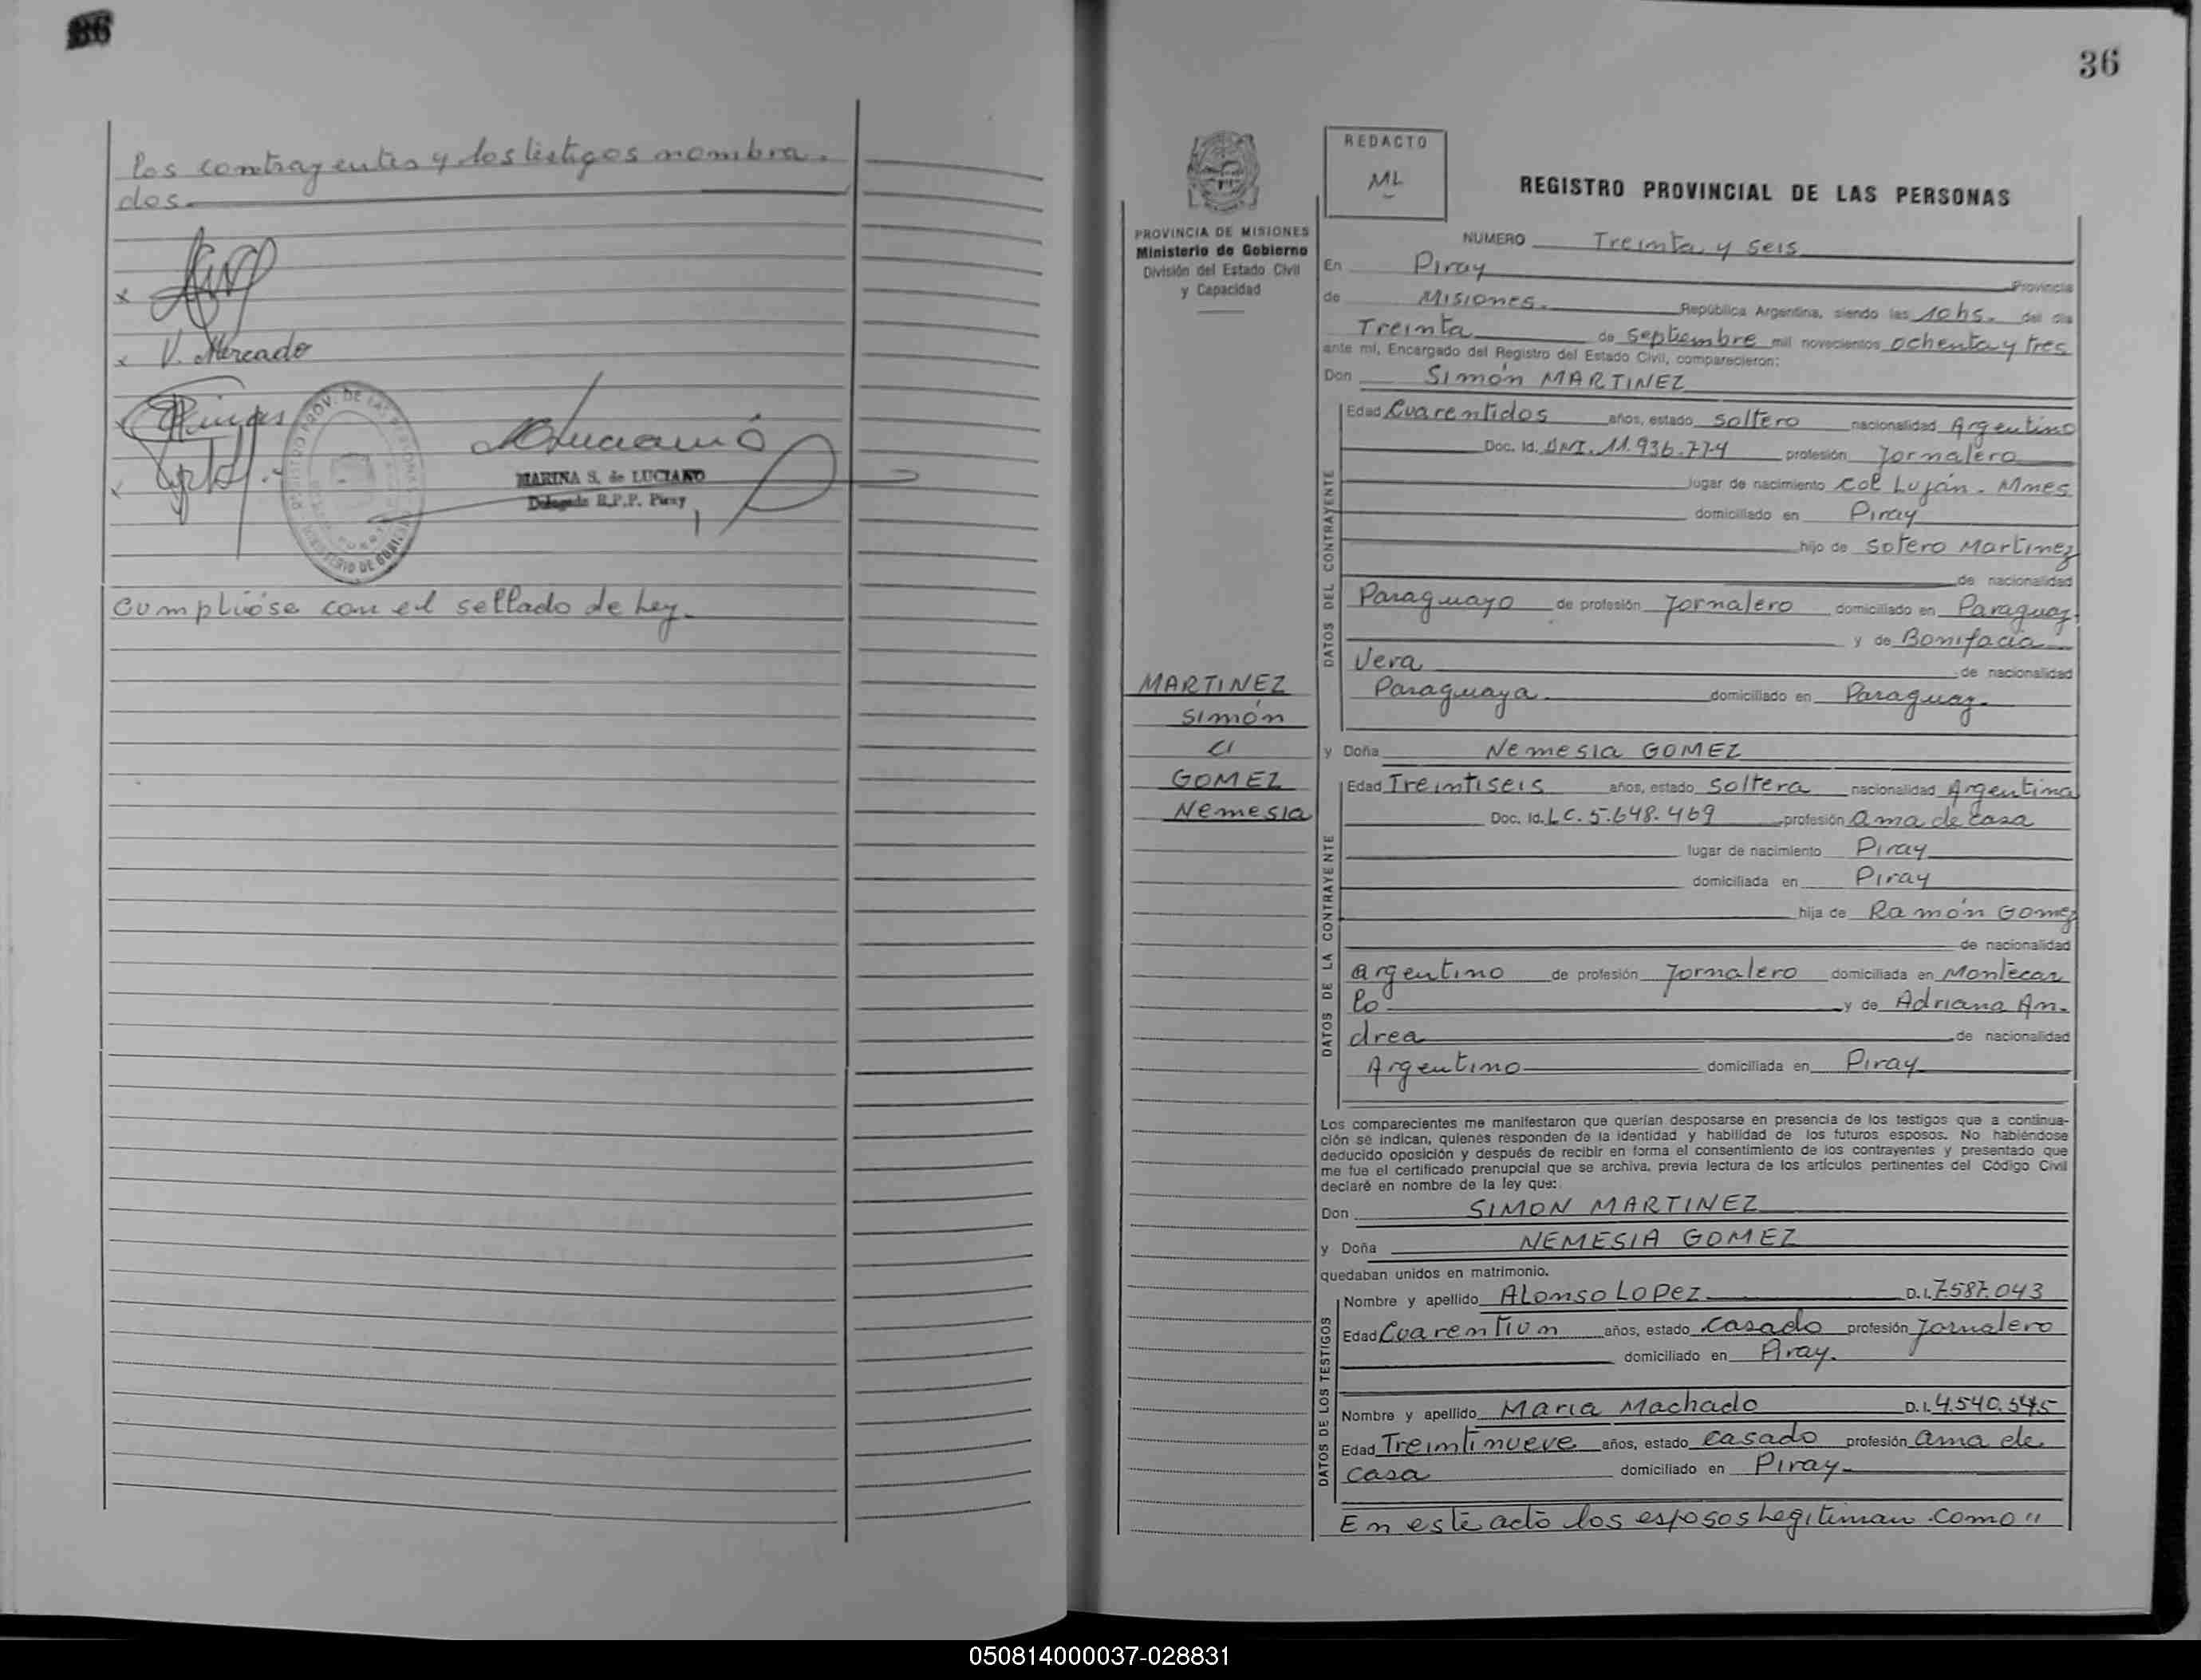 los contrayentes y los testigos nombra-
dos.
x
x V. Mercado
MARINA S. de LUCIANO
Delegada R.P.P. Piray
Cumplióse con el sellado de Ley.
36
REDACTO
ML
REGISTRO PROVINCIAL DE LAS PERSONAS
PROVINCIA DE MISIONES
Ministerio de Gobierno
División del Estado Civil
y Capacidad
MARTINEZ
Simón
c/
GOMEZ
Nemesia
NUMERO Treinta y seis
En Piray Provincia
de Misiones. República Argentina, siendo las 10 hs. del día
Treinta de Septiembre mil novecientos ochenta y tres
ante mí, Encargado del Registro del Estado Civil, comparecieron:
Don Simón MARTINEZ
DATOS DEL CONTRAYENTE
Edad Cuarentidos años, estado soltero nacionalidad Argentino
Doc. Id. DNI. 11.936.774 profesión Jornalero
lugar de nacimiento Col Luján. Mnes
domiciliado en Piray
hijo de Sotero Martinez
de nacionalidad
Paraguayo de profesión Jornalero domiciliado en Paraguay.
y de Bonifacia
Vera de nacionalidad
Paraguaya domiciliado en Paraguay.
y Doña Nemesia GOMEZ
DATOS DE LA CONTRAYENTE
Edad Treintiseis años, estado soltera nacionalidad Argentina
Doc. Id. LC. 5.648.469 profesión ama de casa
lugar de nacimiento Piray
domiciliada en Piray
hija de Ramón Gomez
de nacionalidad
argentino de profesión Jornalero domiciliada en Montecar
lo y de Adriana An-
drea de nacionalidad
Argentino domiciliada en Piray
Los comparecientes me manifestaron que querían desposarse en presencia de los testigos que a continua-
ción se indican, quienes responden de la identidad y habilidad de los futuros esposos. No habiéndose
deducido oposición y después de recibir en forma el consentimiento de los contrayentes y presentado que
me fue el certificado prenupcial que se archiva, previa lectura de los artículos pertinentes del Código Civil
declaré en nombre de la ley que:
Don SIMON MARTINEZ
y Doña NEMESIA GOMEZ
quedaban unidos en matrimonio.
DATOS DE LOS TESTIGOS
Nombre y apellido ALONSO LOPEZ D.I. 7.587.043
Edad Cuarentiun años, estado casado profesión Jornalero
domiciliado en Piray.
Nombre y apellido Maria Machado D.I. 4.540.545
Edad Treintinueve años, estado casado profesión ama de
casa domiciliado en Piray
En este acto los esposos Legitiman como "
050814000037-028831